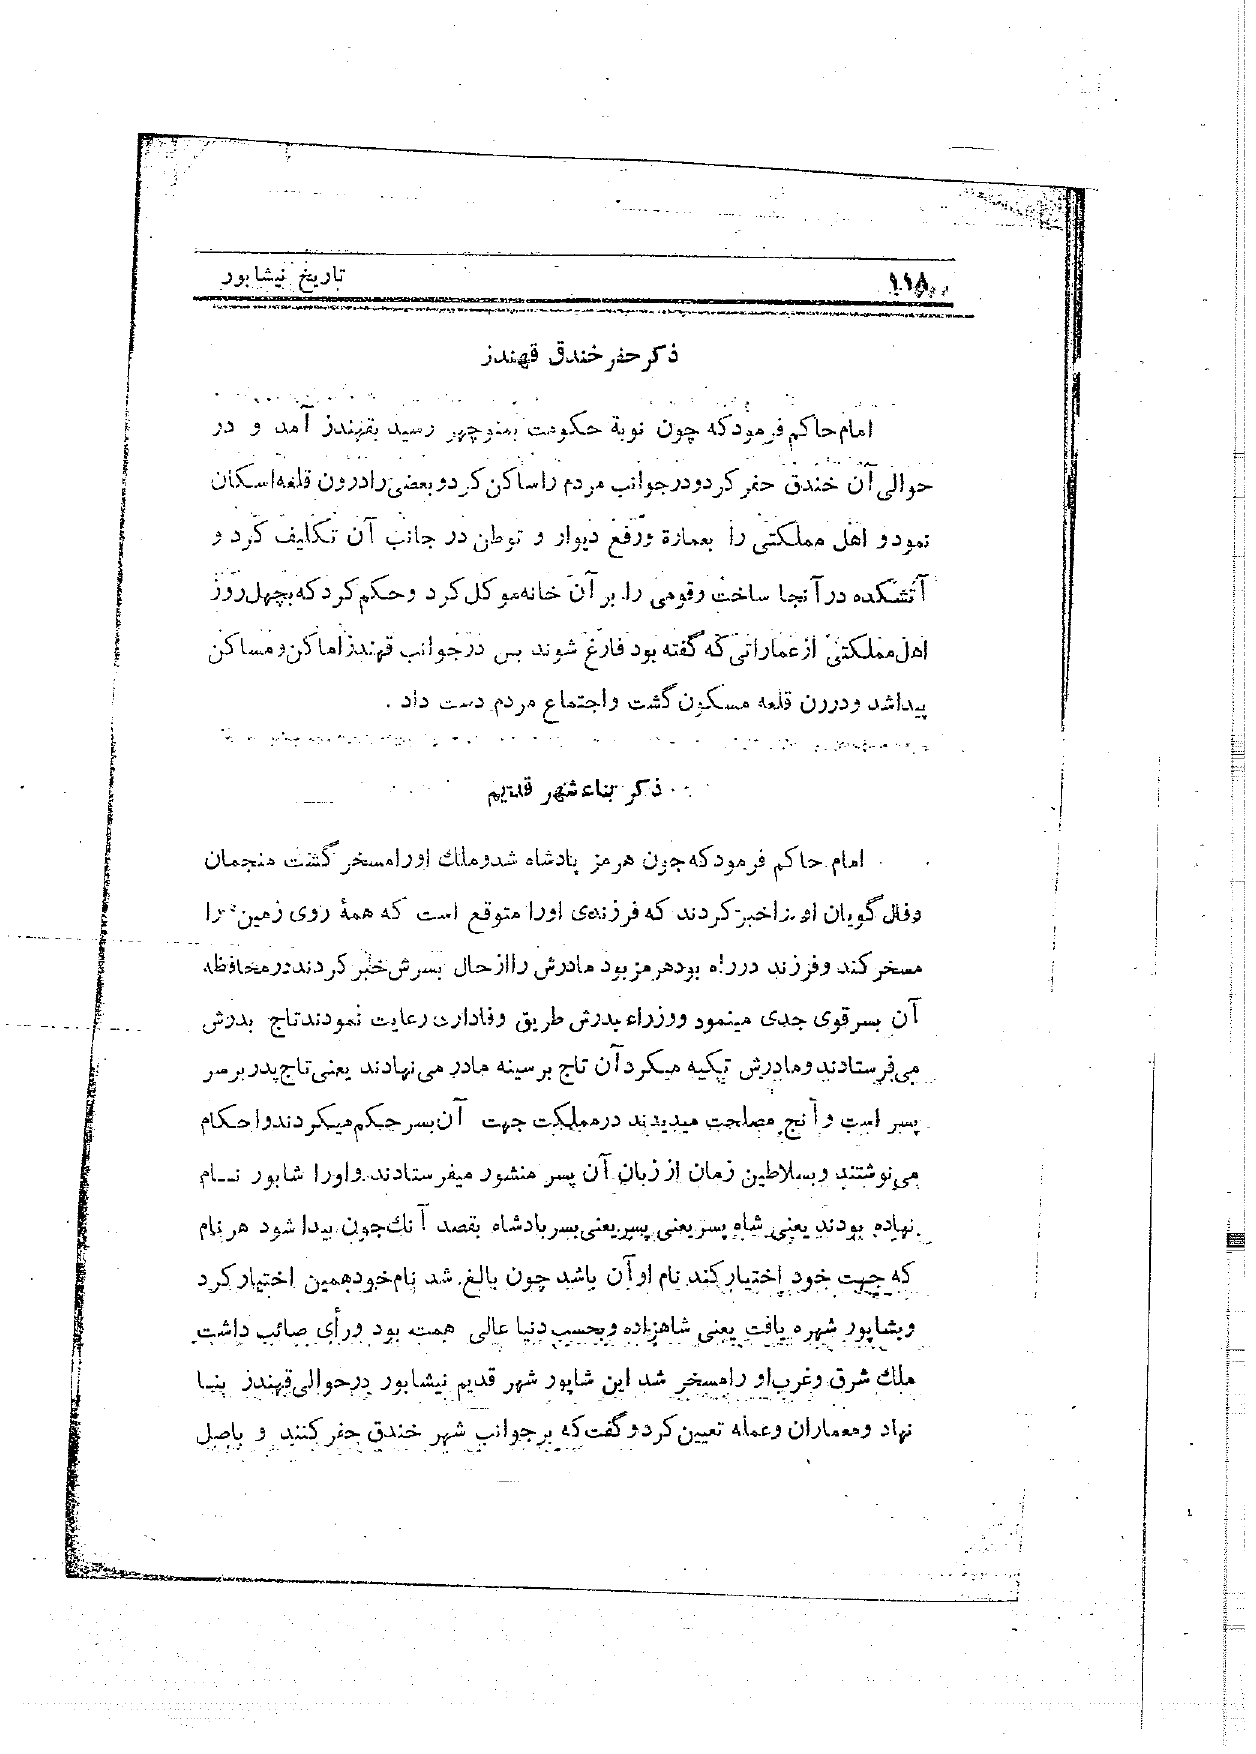 ۱۱۸ تاریخ نیشابور
ذکر حفر خندق قهندز
امام حاکم فرمود که چون نوبة حکومت بمنوچهر رسید بقهندز آمد و در
حوالی آن خندق حفر کرد و در جوانب مردم را ساکن کرد و بعضی را درون قلعه اسکان
نمود و اهل مملکتی را بعمارة ورفع دیوار و توطن در جانب آن تکلیف کرد و
آتشکده در آنجا ساخت وقومی را بر آن خانه موکل کرد وحکم کرد که بچهل روز
اهل مملکتی از عماراتی که گفته بود فارغ شوند بس در جوانب قهندز اماکن و مساکن
پیدا شد ودرون قلعه مسکون گشت واجتماع مردم دست داد .
ذکر بناء شهر قدیم
امام حاکم فرمود که چون هرمز پادشاه شد وملك اورا مسخر گشت منجمان
وفال گویان او را خبر کردند که فرزندی اورا متوقع است که همۀ روی زمین را
مسخر کند وفرزند در راه بود هرمز بود مادرش را از حال بسرش خبر کردند در محافظه
آن بسر قوی جدی مینمود ووزراء بدرش طریق وفاداری رعایت نمودند تاج بدرش
می‌فرستادند ومادرش تکیه میکرد آن تاج بر سینه مادر می‌نهادند یعنی تاج پدر بر سر
پسر است وآنچ مصلحت میدیدند در مملکت جهت آن بسر حکم میکردند واحکام
می‌نوشتند وبسلاطین زمان از زبان آن پسر منشور میفرستادند واورا شابور نــام
نهاده بودند یعنی شاه پسر یعنی پسر یعنی بسر بادشاه بقصد آنك چون بیدا شود هر نام
که جهت خود اختیار کند نام او آن باشد چون بالغ شد نام خود همین اختیار کرد
وبشاپور شهره یافت یعنی شاهزاده وبحسب دنیا عالی همت بود ورأی صائب داشت
ملك شرق وغرب او را مسخر شد این شاپور شهر قدیم نیشابور در حوالی قهندز بنیا
نهاد ومعماران وعمله تعیین کرد و گفت که بر جوانب شهر خندق حفر کنند و باصل